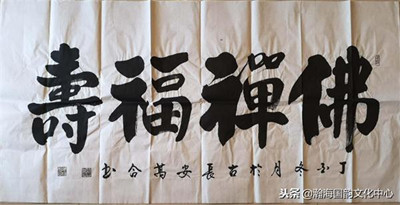 佛禪福壽
丁冬月於古長安萬合书
头条@瀚海国韵文化中心